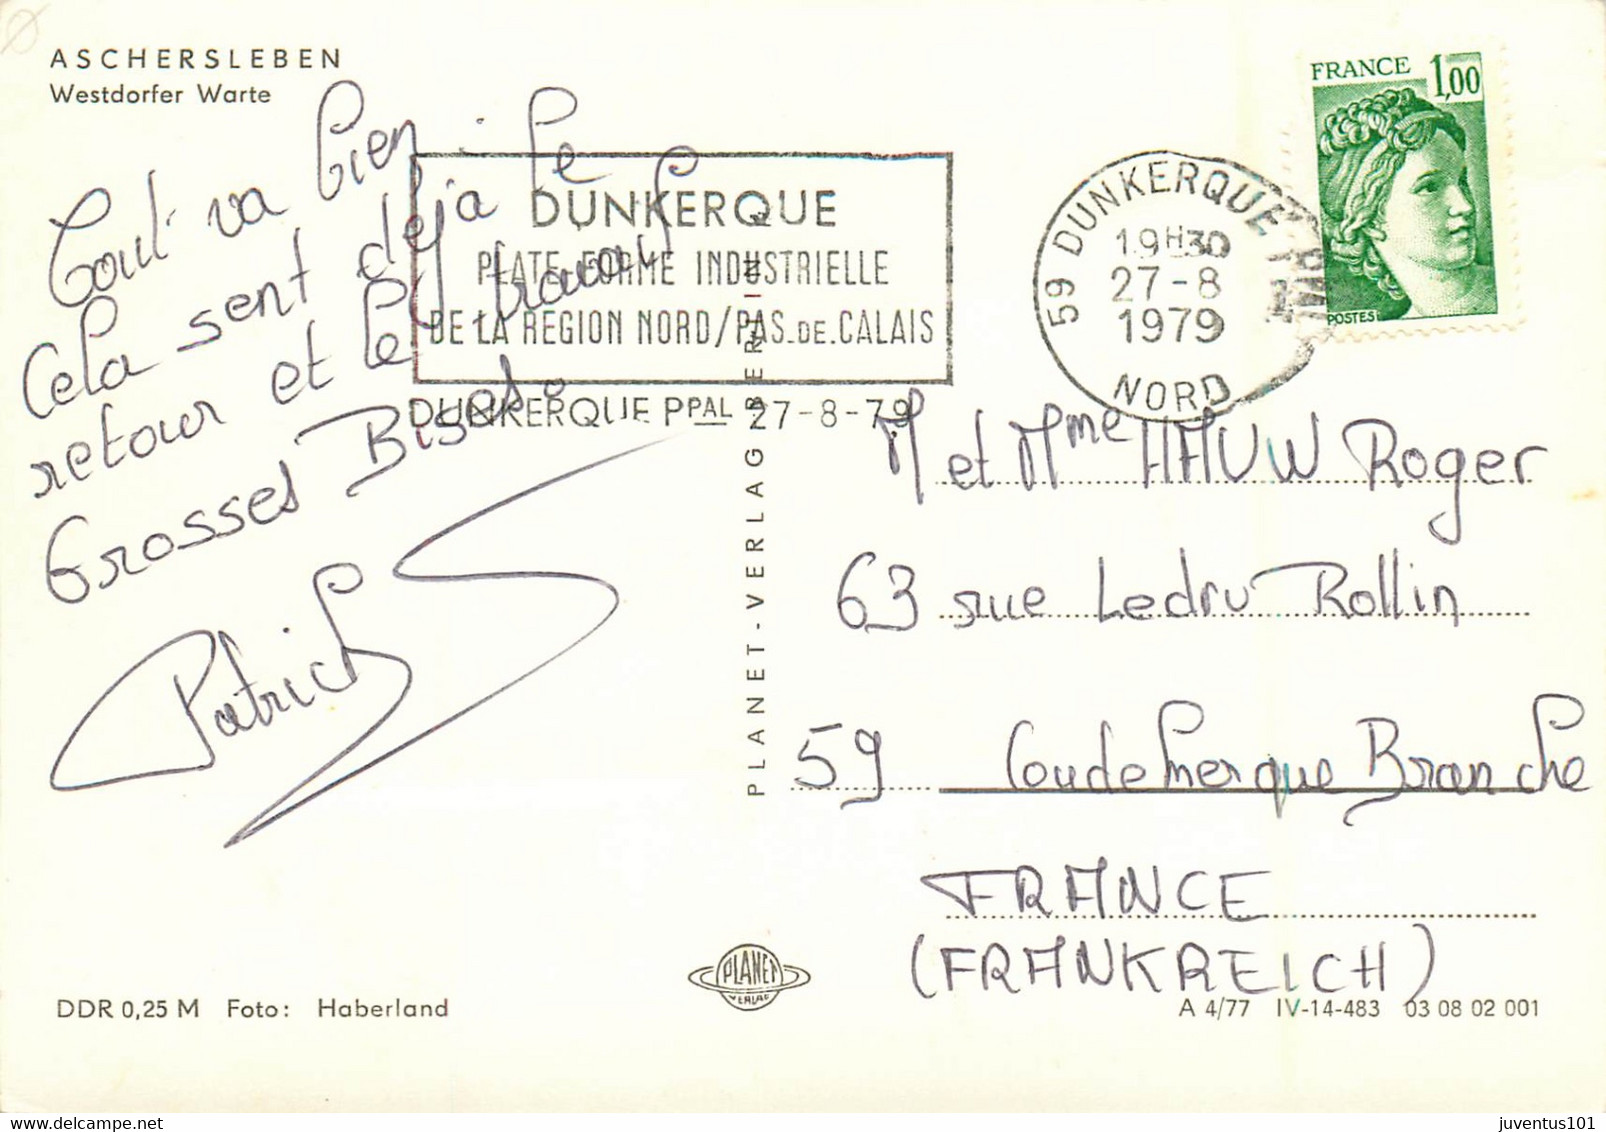 ASCHERSLEBEN
Westdorfer Warte
Tout va bien. Le
Cela sent déjà le
retour et le travail
Grosses Bises.
Patrick
DUNKERQUE
PLATE-FORME INDUSTRIELLE
DE LA REGION NORD/PAS.DE.CALAIS
DUNKERQUE PPAL 27-8-79
59 DUNKERQUE
19H30
27-8
1979
NORD
FRANCE 1,00
POSTES
PLANET-VERLAG BERLIN
M et Mme HAUW Roger
63 rue Ledru Rollin
59 Coudekerque Branche
FRANCE
(FRANKREICH)
PLANET
VERLAG
DDR 0,25 M Foto: Haberland
A 4/77 IV-14-483 03 08 02 001
juventus101